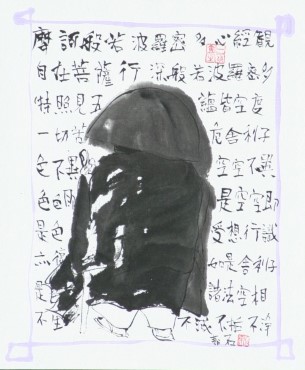 摩訶般若波羅蜜多心經觀
自在菩薩行深般若波羅蜜多
時照見五蘊皆空度
一切苦厄舍利子
色不異空空不異
色色即是空空即
是色受想行識
亦復如是舍利子
是諸法空相
不生不滅不垢不淨